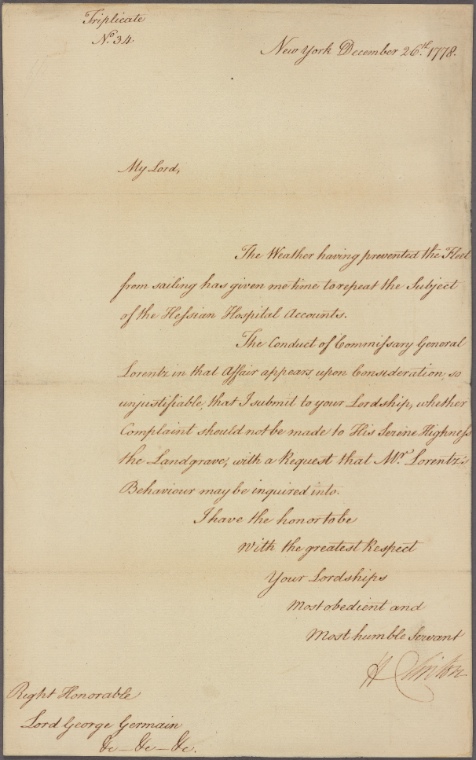 Triplicate
No. 34
New York December 26th. 1778.
My Lord,
The Weather having prevented the Fleet
from sailing has given me time to repeat the Subject
of the Hessian Hospital Accounts.
The Conduct of Commissary General
Lorentz in that Affair appears upon Consideration, so
unjustifiable, that I submit to your Lordship, whether
Complaint should not be made to His Serene Highness
the Landgrave, with a Request that Mr. Lorentz's
Behaviour may be inquired into.
I have the honor to be
With the greatest Respect
Your Lordships
Most obedient and
Most humble Servant
H Clinton
Right Honorable
Lord George Germain
&c - &c - &c.